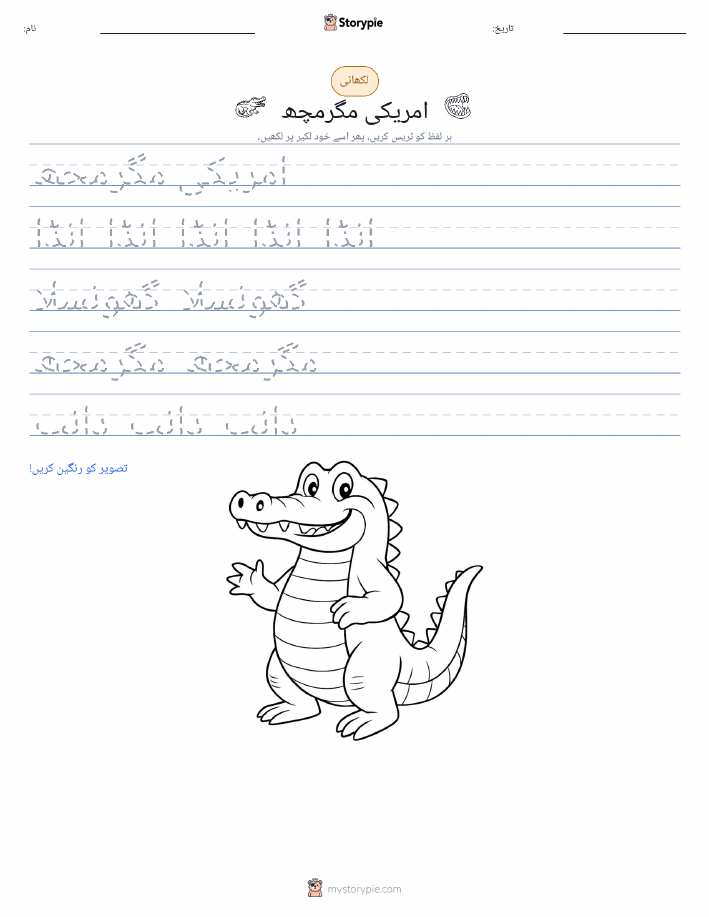 Storypie
نام:
تاریخ:
لکھائی
امریکی مگرمچھ
ہر لفظ کو ٹریس کریں، پھر اسے خود لکیر پر لکھیں۔
امریکی مگرمچھ
انڈا انڈا انڈا انڈا انڈا
گھونسلا گھونسلا
مگرمچھ مگرمچھ
دانت دانت دانت
تصویر کو رنگین کریں!
mystorypie.com